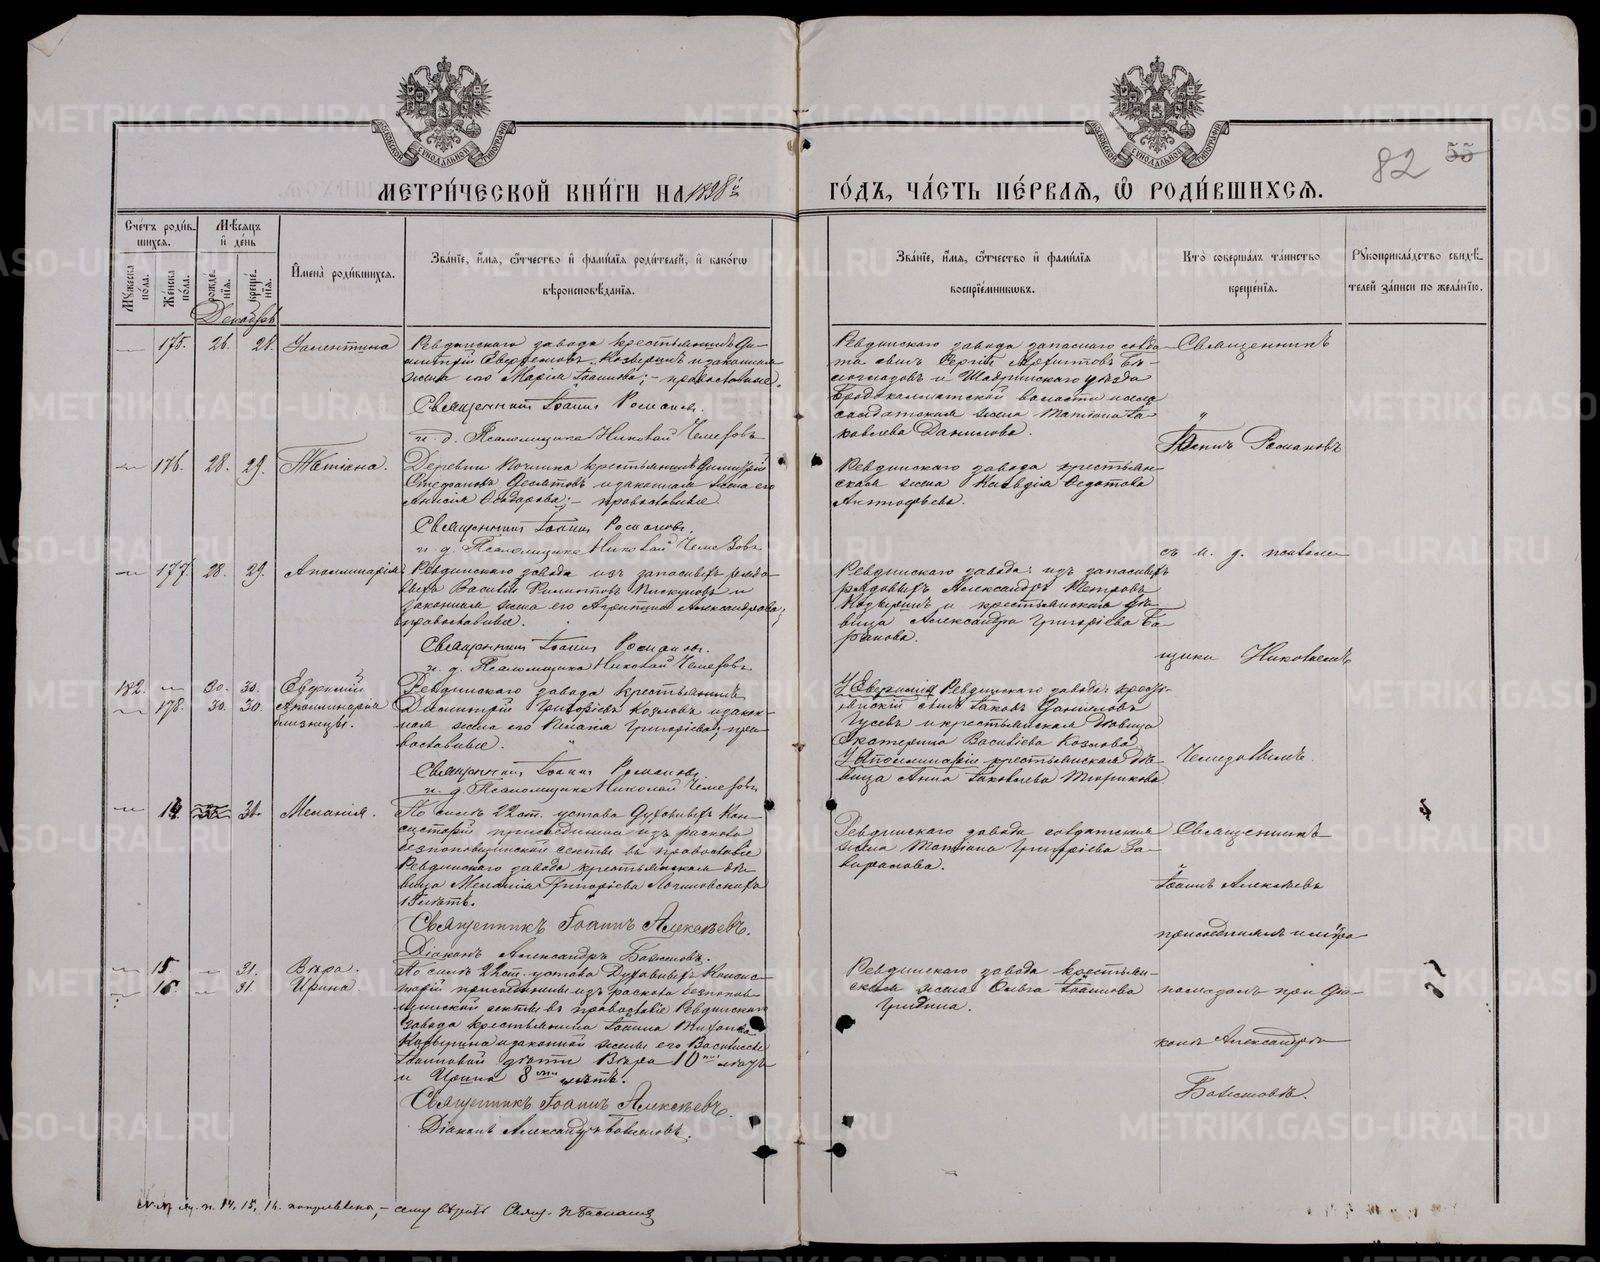 МЕТРИ́ЧЕСКОЙ КНИ́ГИ НА 1898 й
ГО́ДЪ, ЧА́СТЬ ПЕ́РВАЯ, Ѽ РОДИ́ВШИХСЯ.
82 55
МОСКОВСКОЙ СѴНОДАЛЬНОЙ ТИПОГРАФІИ
МОСКОВСКОЙ СѴНОДАЛЬНОЙ ТИПОГРАФІИ
Сче́тъ роди́в-
шихся.
Му́жеска по́ла.
Же́нска по́ла.
Мѣ́сяцъ и́ де́нь
рожде́нїя.
креще́нїя.
И҆мена̀ роди́вшихся.
Зва́нїе, и҆́мя, ѻ҆́тчество и҆ фами́лїя роди́телей, и҆ како́гѡ
вѣроисповѣ́данїя.
Зва́нїе, и҆́мя, ѻ҆́тчество и҆ фами́лїя
воспрїе́мникѡвъ.
Кто̀ соверша́лъ та́инство
креще́нїя.
Рꙋкоприкла́дство свидѣ́-
телей за́писи по жела́нїю.
Декабрь
175. 26. 28. Валентина
Ревдинскаго завода крестьянинъ Ди-
митрій Евфремовъ Козыринъ и законная
жена его Марія Іоаннова; - православные.
Священникъ Іоаннъ Романовъ.
и. д. Псаломщика Николай Чемезовъ
Ревдинскаго завода запаснаго солда-
та сынъ Сергій
и Шадринскаго уѣзда
Бродокалматской волости
солдатская жена Татіана Іа-
ковлева Данилова.
Священникъ
"
Іоаннъ Романовъ
176. 28. 29. Татіана.
Деревни крестьянинъ Димитрій
Стефановъ Десятовъ и законная жена его
Анисія православные
Священникъ Іоаннъ Романовъ.
и. д. Псаломщика Николай Чемезовъ
Ревдинскаго завода крестьян-
ская жена Клавдія Ѳедотова
съ и. д. псалом-
177. 28. 29. Аполлинарія
Ревдинскаго завода изъ запасныхъ рядо-
выхъ Василій Пискуновъ и
законная жена его Агриппина Александрова;
православные.
Священникъ Іоаннъ Романовъ.
и. д. Псаломщика Николай Чемезовъ.
Ревдинскаго завода: изъ запасныхъ
рядовыхъ Александръ Петровъ
Козыринъ и крестьянская дѣ-
вица Александра Григоріева Ба-
ранова.
щика Николаемъ
182. 30. 30. Евгеній
178. 30. 30. Аполлинарія
близнецы.
Ревдинскаго завода крестьянинъ
Димитрій Григоріевъ Козловъ и закон-
ная жена его Пелагія Григоріева; пра-
вославные.
Священникъ Іоаннъ Романовъ
и. д. Псаломщика Николай Чемезовъ
Ревдинскаго завода крестьян-
скій сынъ Іаковъ Даниловъ
Гусевъ и крестьянская дѣвица
Екатерина Василіева Козлова
У Аполлинаріи крестьянская дѣ-
вица Анна Іаковлева Тюрикова
Чемезовымъ
14 30. Меланія.
По силѣ 22 ст. устава Духовныхъ Кон-
систорій присоединена изъ раскола
безпоповщинской секты въ православіе
Ревдинскаго завода крестьянская дѣ-
вица Меланія Григоріева Логиновскихъ
лѣтъ.
Священникъ Іоаннъ Алексѣевъ.
Діаконъ Александръ Бажановъ.
Ревдинскаго завода солдатская
жена Татіана Григоріева
Священникъ
Іоаннъ Алексѣевъ
присоединялъ и мѵро-
15. 31. Вѣра.
16. 31. Ирина.
По силѣ 22 ст. устава Духовныхъ Консис-
торій присоединены изъ раскола безпопов-
щинской секты въ православіе Ревдинскаго
завода крестьянина Іоанна
и законной жены его Василисы
Іоанновой дѣти Вѣра 10 ти лѣтъ
и Ирина 8 ми лѣтъ.
Священникъ Іоаннъ Алексѣевъ.
Діаконъ Александръ Бажановъ.
Ревдинскаго завода крестьян-
ская жена Ольга Іоаннова
помазалъ при Діа-
конѣ Александрѣ
Бажановѣ.
14, 15, 16. - сему вѣрить Свящ. Романовъ
METRIKI.GASO-URAL.RU